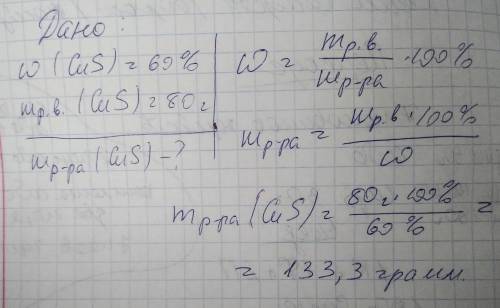 Дано:
ω (CuS) = 60%
mр.в. (CuS) = 80г
mр-ра (CuS) - ?
ω = mр.в. / mр-ра · 100%
mр-ра = mр.в · 100% / ω
mр-ра (CuS) = 80г · 100% / 60% =
= 133,3 грамм.